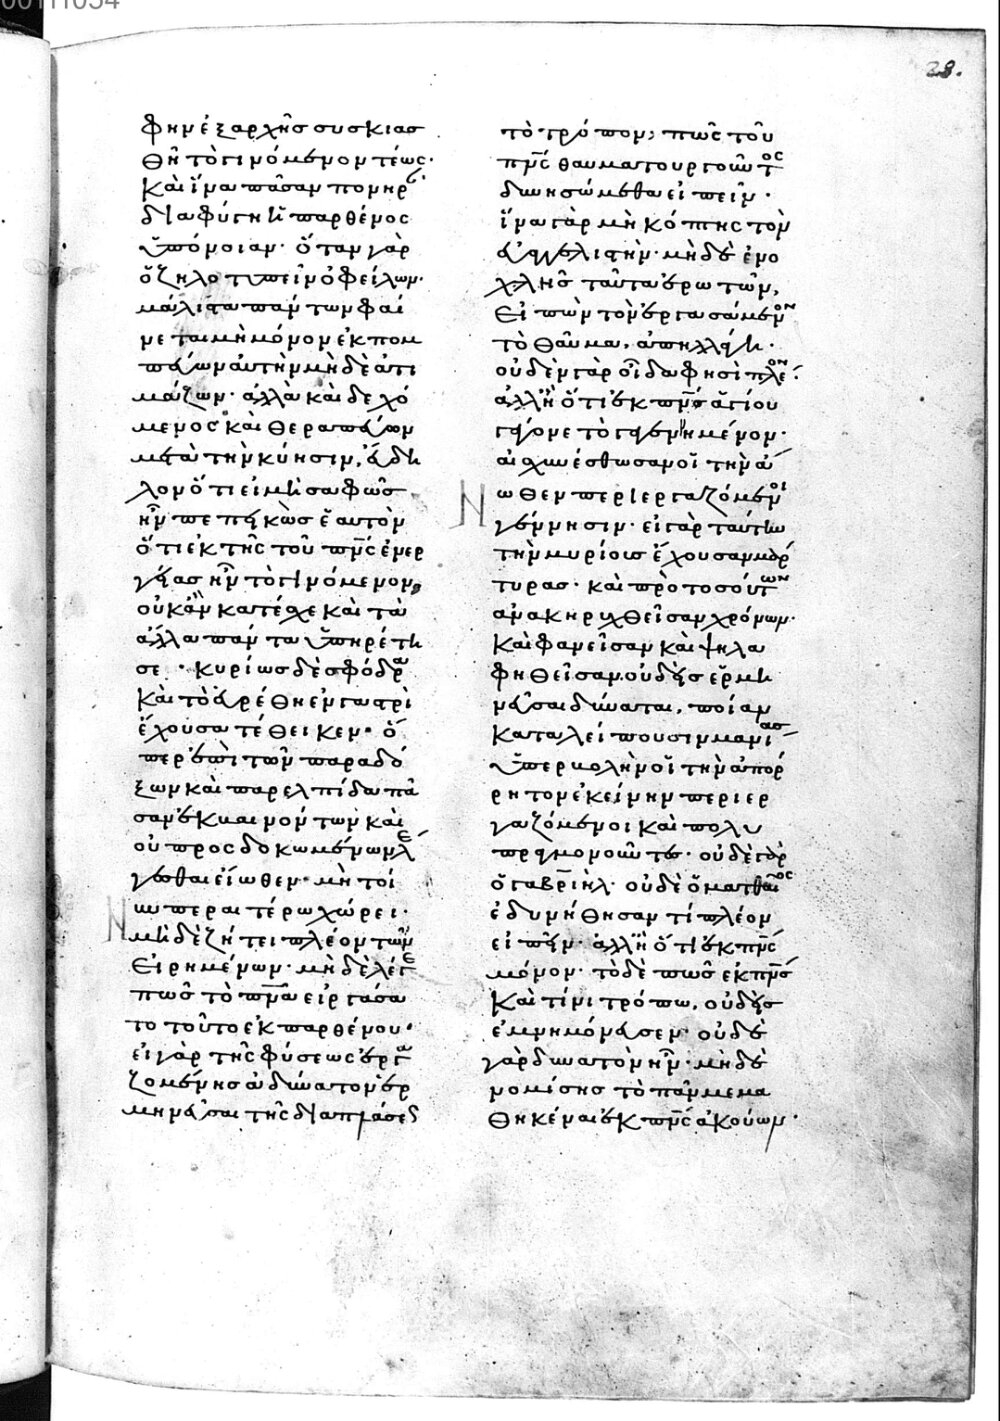 28.
φην ἐξαρχῆς συσκιασ
θῆ τὸ γινόμενον τέως·
καὶ ἵνα πᾶσαν πονηρὰν
διαφύγη ἡ παρθένος
ὑπόνοιαν· ὅταν γὰρ
ὁ ζηλοτυπεῖν ὀφείλων·
μάλιστα πάντων φαί
νεται μὴ μόνον ἐκπομ
πεύων αὐτὴν μὴδὲ ἀτι
μάζων· ἀλλὰ καὶ δεχό
μενος καὶ θεραπεύων
μετὰ τὴν κύησιν, εὔδη
λον ὅτι εἰ μὴ σαφῶς
ἦν πεπεικὼς ἑαυτὸν
ὅτι ἐκ τῆς τοῦ πνς ἐνερ
γείας ἦν τὸ γινόμενον,
οὐκ ἂν κατέσχε καὶ τὰ
ἄλλα πάντα ὑπηρέτη
σε· κυρίως δὲ σφόδρα
καὶ τὸ εὑρέθη ἐν γαστρὶ
ἔχουσα τέθεικεν· ὅ
περ ἐπὶ τῶν παραδό
ξων καὶ παρελπίδα πᾶ
σαν ἐκβαινόντων καὶ
οὐ προσδοκωμένων λέ
γεσθαι εἴωθεν· μὴ τοί
νυν περαιτέρω χώρει·
μὴδὲ ζήτει πλέον τῶν
εἰρημένων· μὴδὲ λέγε
πῶς τὸ πνα εἰργάσα
το τοῦτο ἐκ παρθένου·
εἰ γὰρ τῆς φύσεως ἐργα
ζομένης ἀδύνατον ἑρ
μηνεῦσαι τῆς διαπλάσεως
τὸ τρόπον; πῶς τοῦ
πνς θαυματουργοῦντος
δυνησώμεθα εἰπεῖν·
ἵνα γὰρ μὴ κόπτης τὸν
εὐαγγελιστὴν· μὴδὲ ἐνο
χλῆς ταῦτα ἐρωτῶν,
εἰπὼν τὸν ἐργασάμενον
τὸ θαῦμα, ἀπηλλάγη·
οὐδὲν γὰρ οἶδα φησὶ πλέον·
ἀλλ' ἢ ὅτι ἐκ πνς ἁγίου
γέγονε τὸ γεγενημένον·
αἰσχυνέσθωσαν οἱ τὴν ἄ
νωθεν περιεργαζόμενοι
γέννησιν· εἰ γὰρ ταύτην
τὴν μυρίους ἔχουσαν μάρ
τυρας· καὶ πρὸ τοσούτων
ἀνακηρυχθεῖσαν χρόνων·
καὶ φανεῖσαν καὶ ψηλα
φηθεῖσαν οὐδεὶς ἑρμη
νεῦσαι δύναται, ποίαν
καταλείπουσιν μανίας
ὑπερβολὴν οἱ τὴν ἀπόρ
ρητον ἐκείνην περιερ
γαζόμενοι καὶ πολυ
πραγμονοῦντες· οὐδὲ γὰρ
ὁ γαβριὴλ· οὐδὲ ὁ ματθαῖος
ἐδυνήθησαν τί πλέον
εἰπεῖν· ἀλλ' ἢ ὅτι ἐκ πνς
μόνον· τὸ δὲ πῶς ἐκ πνς
καὶ τίνι τρόπω, οὐδεὶς
ἐμνημόνευσεν· οὐδὲ
γὰρ δυνατὸν ἦν· μὴδὲ
νομίσης τὸ πᾶν μεμα
θηκέναι ἐκ πνς ἀκούων·